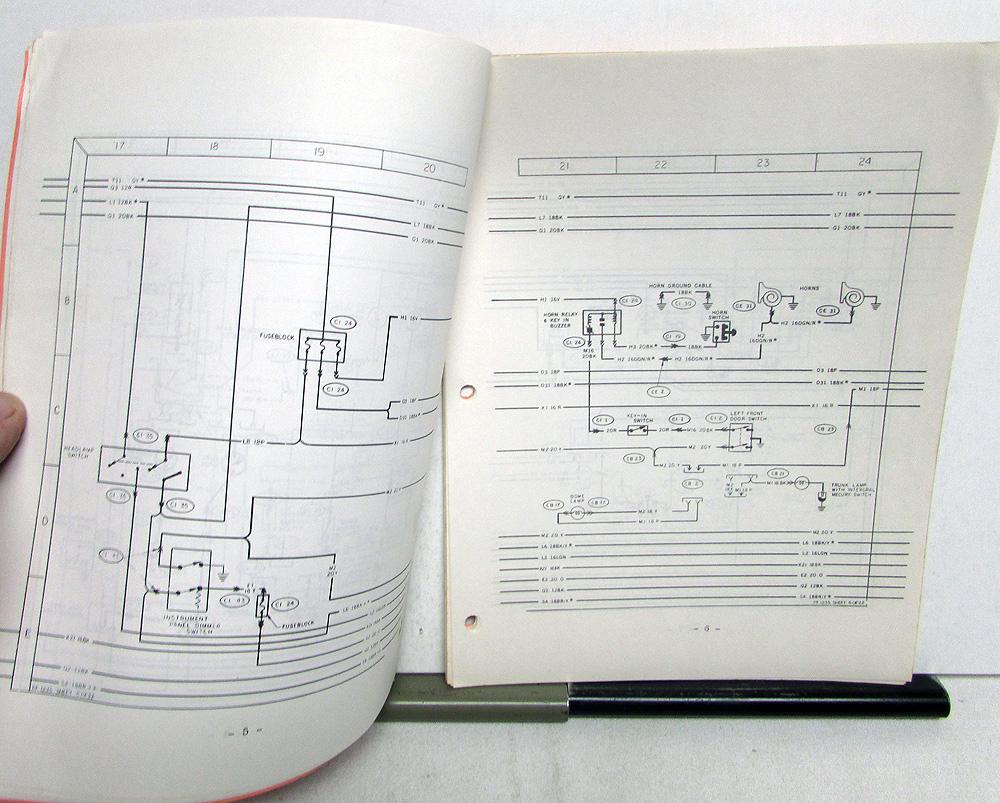 17 18 19 20
A
T11 GY*
G3 12R
L1 12BK*
G1 20BK
T11 GY*
L7 18BK
G1 20BK
B
C1 24
FUSEBLOCK
H1 16V
C1 24
C
C1 35
HEADLAMP
SWITCH
L8 18P
X1 16R
C1 35
C1 35
M2 20Y
D
M2
20Y
F1
18Y
C1 43
C1 24
FUSEBLOCK
INSTRUMENT
PANEL DIMMER
SWITCH
E
X21 18BK
Q2 12BK
- 5 -
21 22 23 24
T11 GY* T11 GY*
L7 18BK L7 18BK
G1 20BK G1 20BK
HORN GROUND CABLE
18BK
C1 30
HORNS
H1 16V
C1 24
CE 31
CE 31
HORN RELAY
& KEY IN
BUZZER
HORN
SWITCH
H2 16DGN/R*
H2
16DGN/R*
C1 24
M16
20BK
H3 20BK*
C1 19
18BK
H2 16DGN/R* H2 16DGN/R*
CE 2
D3 18P D3 18P
D31 18BK* D31 18BK*
M1 18P
X1 16 R X1 16 R
C1 1
KEY-IN
SWITCH
C1 1
C1 2
LEFT FRONT
DOOR SWITCH
20R 20R M16 20BK
CB 23
M2 20 Y M2 20Y
CB 23
M2 20 Y
M1 18 P
CB 2
CB 21
M2
18Y
M1 18 P
M1 18BK*
TRUNK LAMP
WITH INTERGRAL
MECURY SWITCH
DOME
LAMP
CB 17
CB 17
M2 18 Y
M1 18 P
M2 20 Y M2 20 Y
L6 18BK/Y* L6 18BK/Y*
L2 16LGN L2 16LGN
X21 18BK X21 18BK
E2 20 O E2 20 O
Q2 12BK Q2 12BK
S4 18BR/Y* S4 18BR/Y*
- 6 -